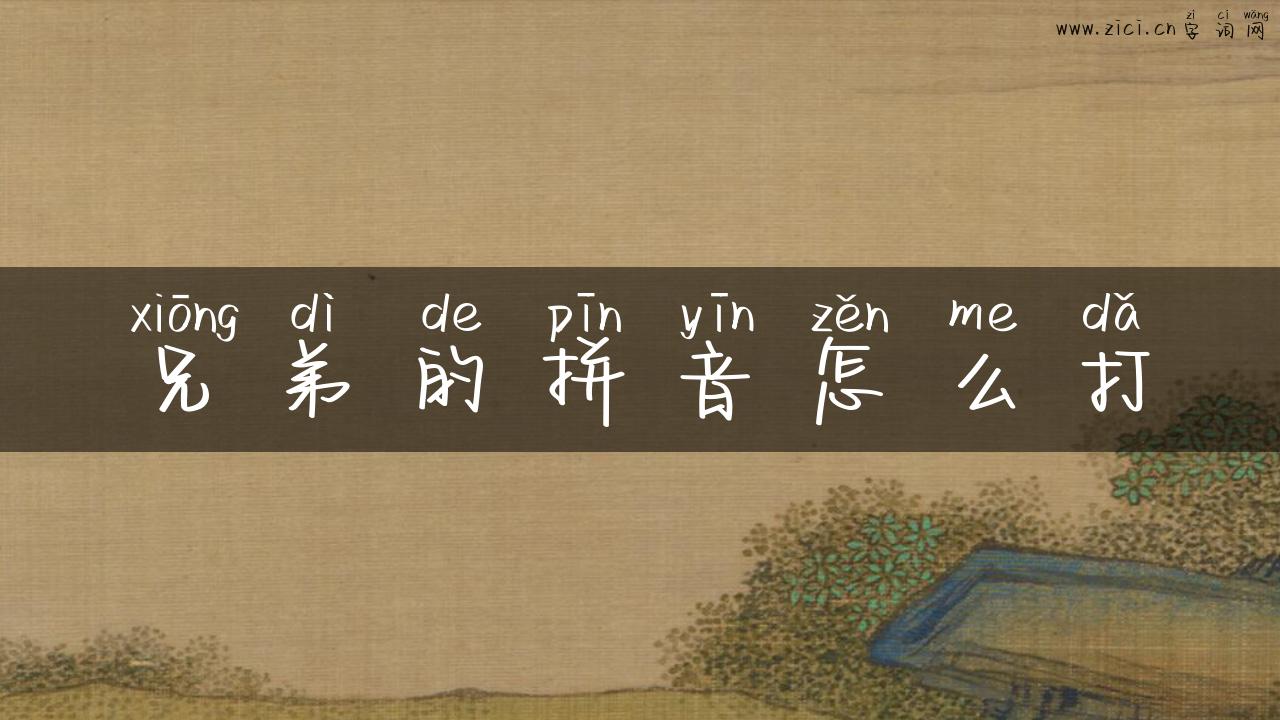 zì cí wǎng
www.zici.cn 字词网
xiōng dì de pīn yīn zěn me dǎ
兄弟的拼音怎么打